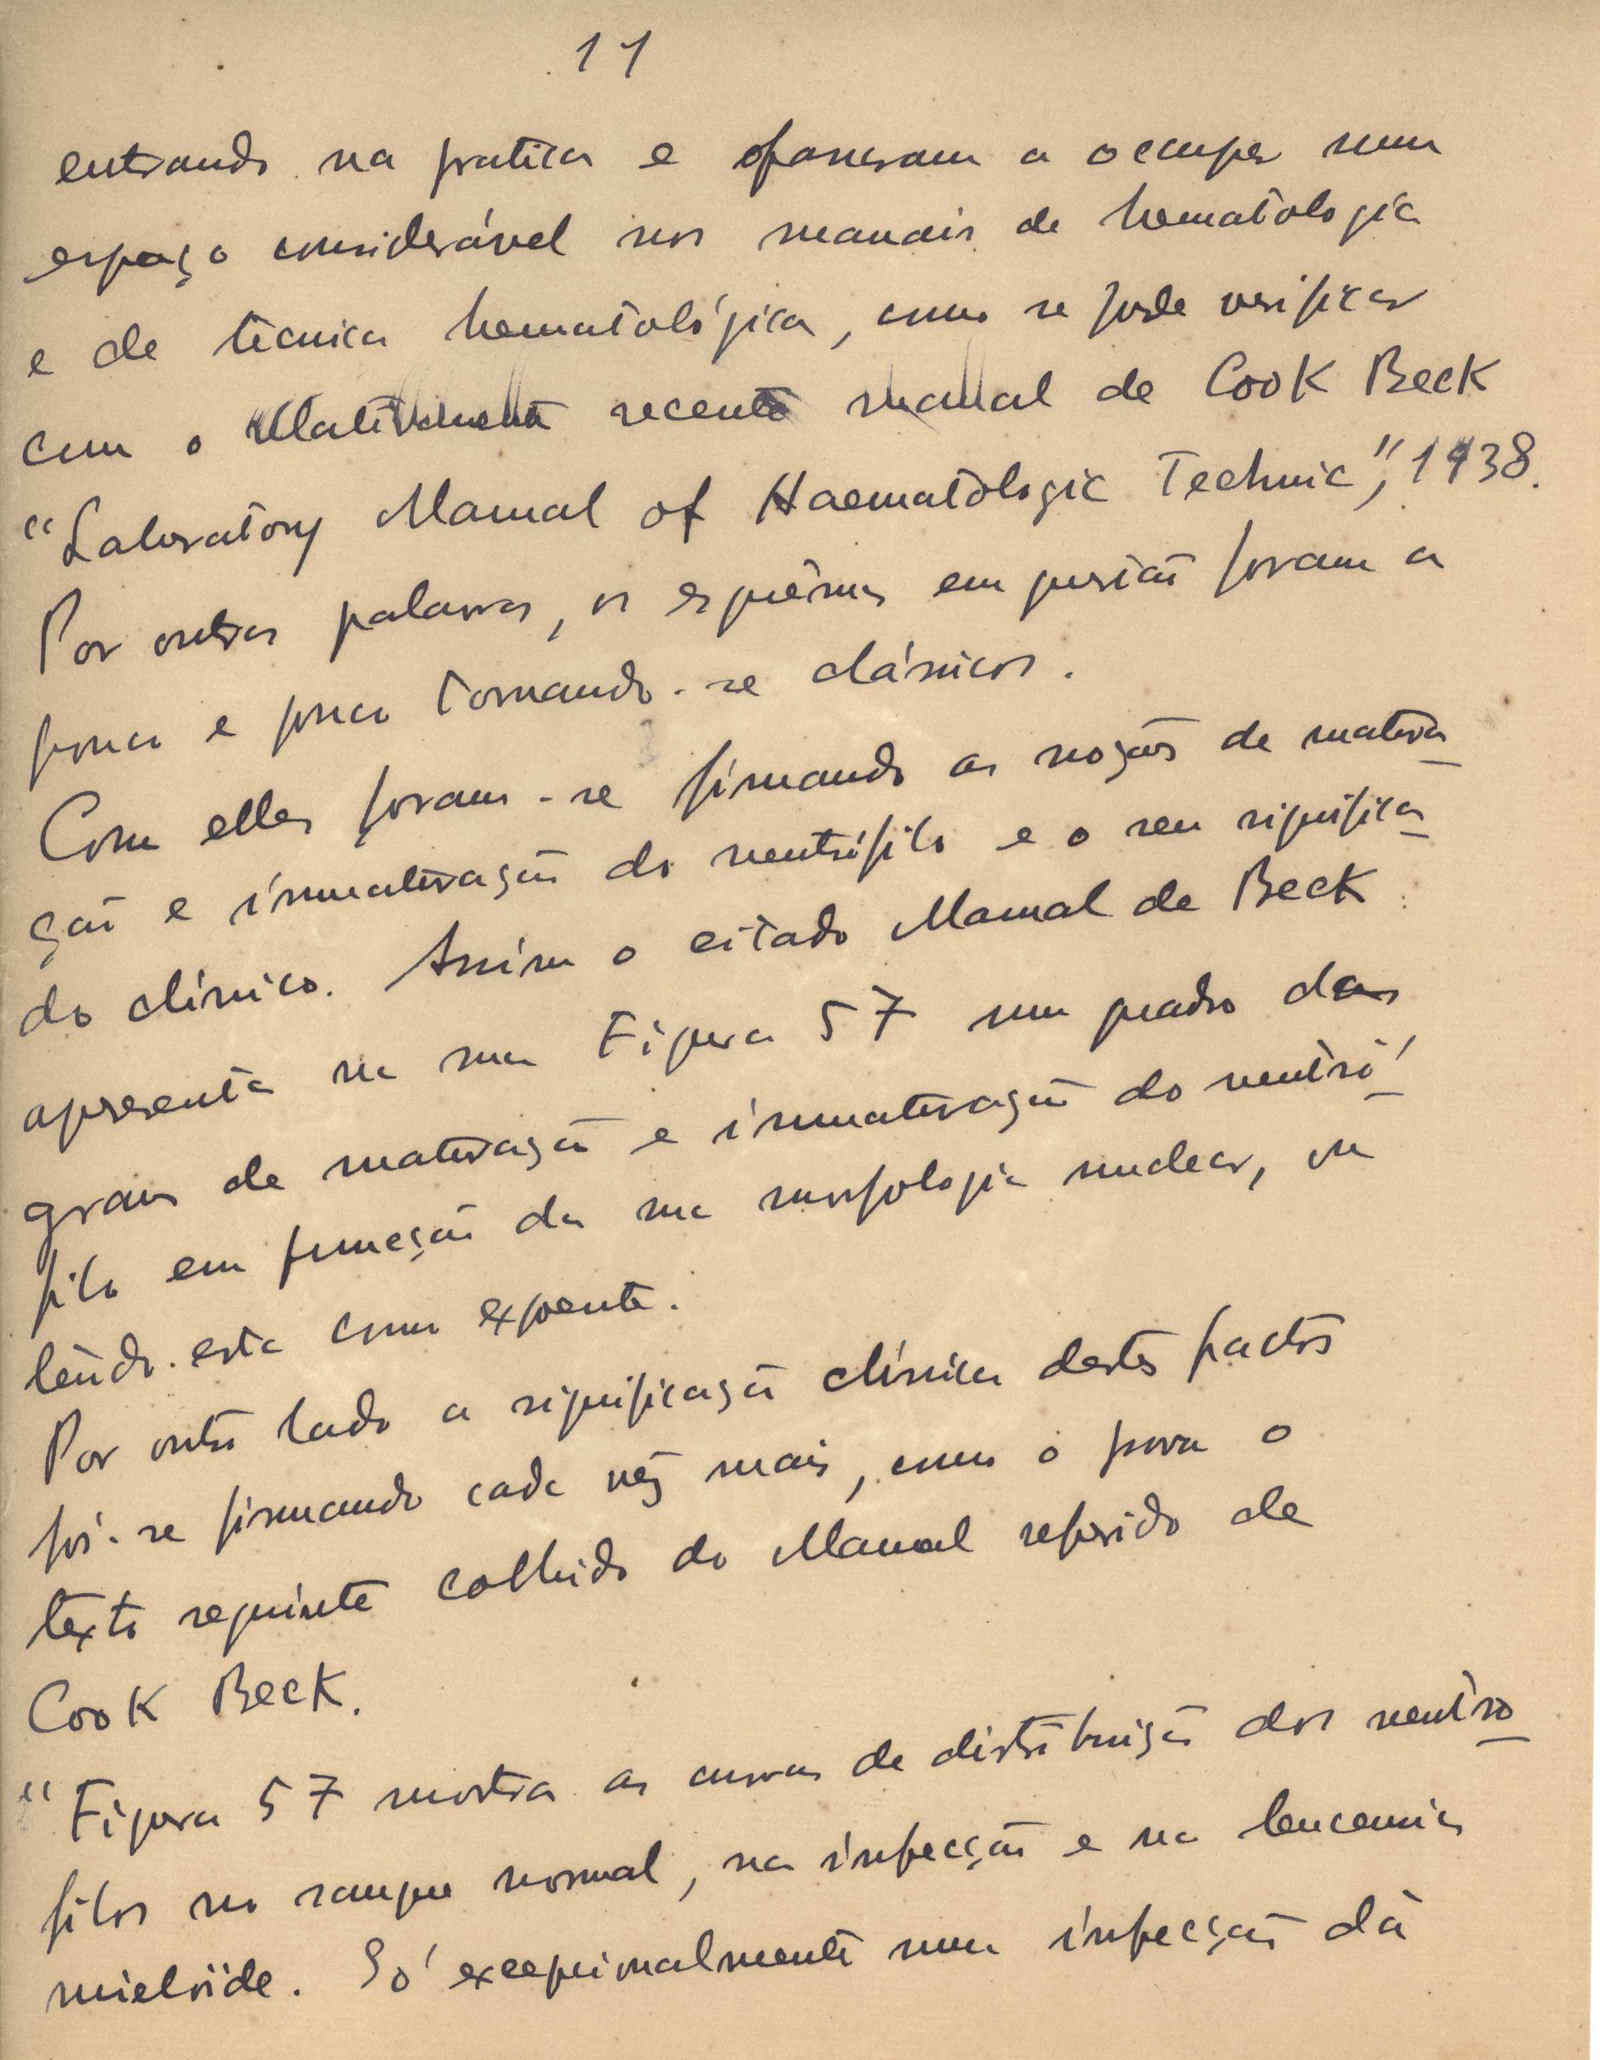 11
entrando na pratica e passaram a occupar um
espaço considerável nos manuais de hematologia
e de técnica hematológica, como se pode verificar
com o relativamente recente manual de Cook Beck
"Laboratory Manual of Haematologic Technic", 1938.
Por outras palavras, os esquêmas em questão foram a
pouco e pouco tornando-se clássicos.
Com elles foram-se firmando as noções de matura
ção e immaturação do neutrófilo e o seu significa
do clínico. Assim o citado Manual de Beck
apresenta na sua Figura 57 um quadro das
graus de maturação e immaturação do neutró
filo em funcção da sua morfologia nuclear, ou
tendo esta como expoente.
Por outro lado a significação clínica destes factos
foi-se firmando cada vêz mais, como o prova o
texto seguinte colhido do Manual referido de
Cook Beck.
"Figura 57 mostra as curvas de distribuição dos neutro
filos no sangue normal, na infecção e na leucemia
mielóide. Só excepcionalmente uma infecção dá